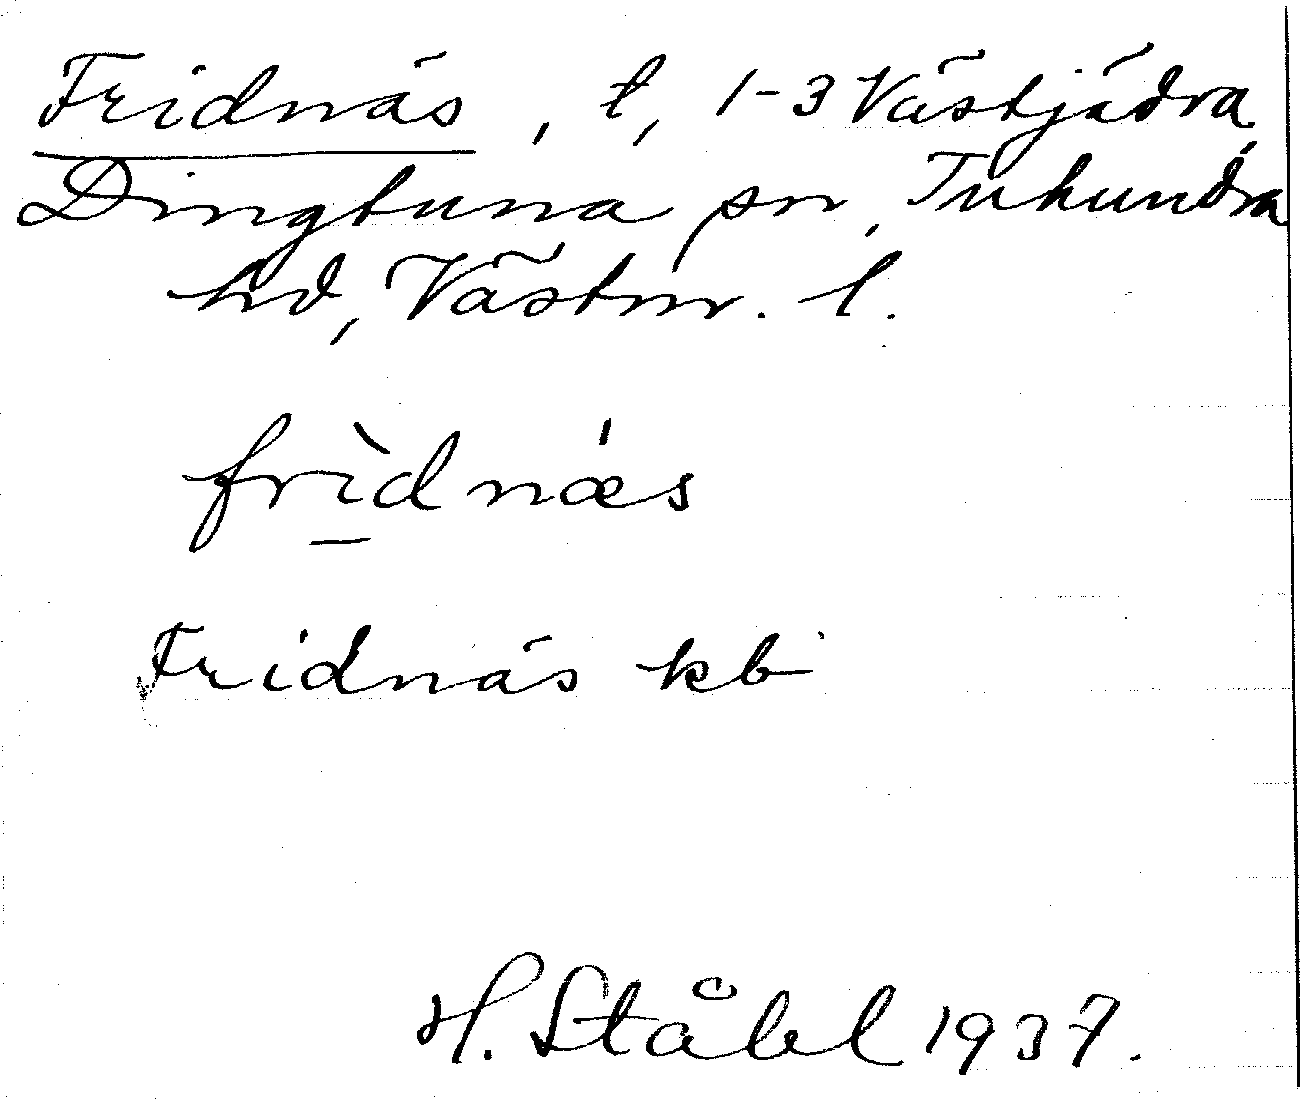 Fridnäs, t, 1-3 Västjädra
Dingtuna sn, Tuhundra
hd, Västm. l.
frìdnǽs
Fridnäs kb
H. Ståhl 1937.